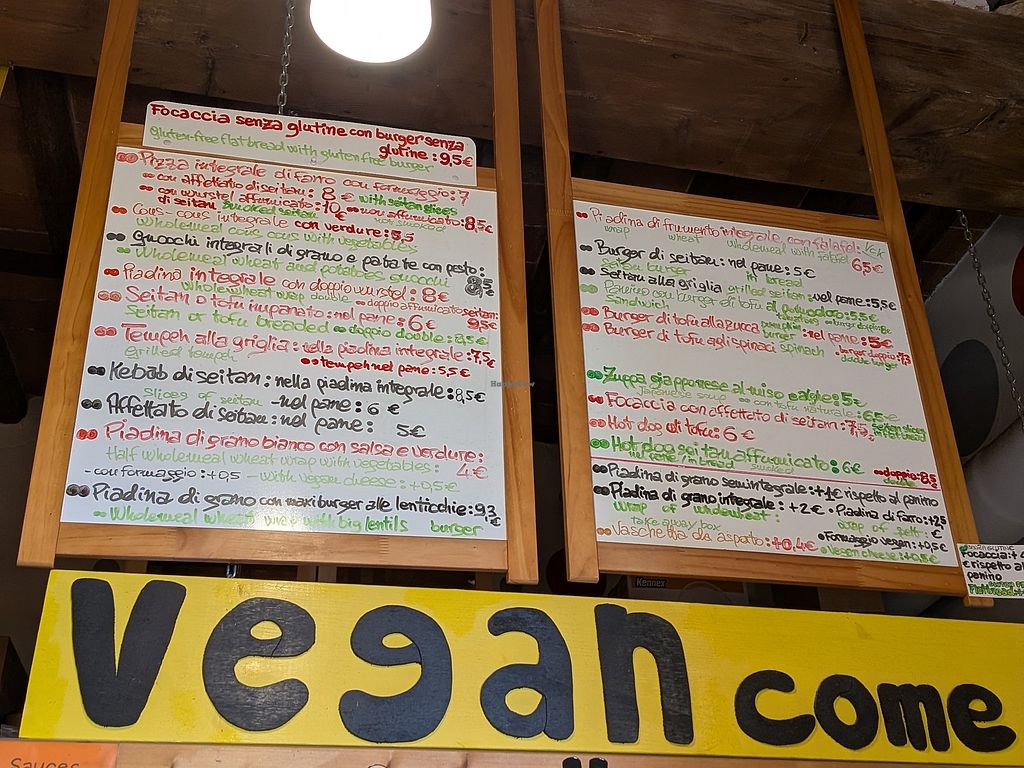 Focaccia senza glutine con burger senza
glutine : 9,5€
Gluten-free flatbread with gluten free burger
Pizza integrale di farro con formaggio : 7
con affettato di seitan : 8 € with seitan slices
con wurstel affumicato : 10 € non affumicato : 8,5€
di seitan smoked seitan not smoked
Cous-cous integrale con verdure : 5,5
Wholemeal cous cous with vegetables
Gnocchi integrali di grano e patate con pesto :
Wholemeal wheat and potatoes gnocchi 8,5€
Piadina integrale con doppio wurstel : 8€
Wholewheat wrap double doppio affumicato seitan : 9,5€
Seitan o tofu impanato : nel pane : 6€
Seitan or tofu breaded doppio double : 8,5€
Tempeh alla griglia : nella piadina integrale : 7,5€
Grilled tempeh Tempeh nel pane : 5,5€
Kebab di seitan : nella piadina integrale : 8,5€
Slices of seitan - nel pane : 6 €
Affettato di seitan : nel pane : 5€
Piadina di grano bianco con salsa e verdure :
Half wholemeal wheat wrap with vegetables : 4€
- con formaggio : +0,5 - with vegan cheese : +0,5€
Piadina di grano con maxi burger alle lenticchie : 9,3
€
Wholemeal wheat wrap with big lentils burger
Piadina di frumento integrale con falafel :
wrap wheat wholemeal with falafel 6,5€
Burger di seitan : nel pane : 5€
seitan burger in bread
Seitan alla griglia grilled seitan : nel pane : 5,5€
Panino con burger di tofu al pomodoro : 5,5€
Sandwich
Burger di tofu alla zucca pumpkin burger : nel pane : 5€
Burger di tofu agli spinaci spinach
burger doppio
double burger
Zuppa giapponese al miso e alghe : 5€
Japanese soup con tofu naturale : 6,5€
Focaccia con affettato di seitan : 7,5 seitan slices
Hot dog di tofu : 6€
Hot dog seitan affumicato : 6€ doppio 8,5
in bread smoked
Piadina di grano semintegrale : +1€ rispetto al panino
Piadina di grano integrale : +2€ Piadina di farro : +2,5
wrap of wholewheat : wrap of spelt : €
take away box Formaggio vegan : +0,5€
Vaschetta da asporto : +0,4€ Vegan cheese : +0,5€
Focaccia : +
€ rispetto al
panino
Kennex
vegan come
Sauces